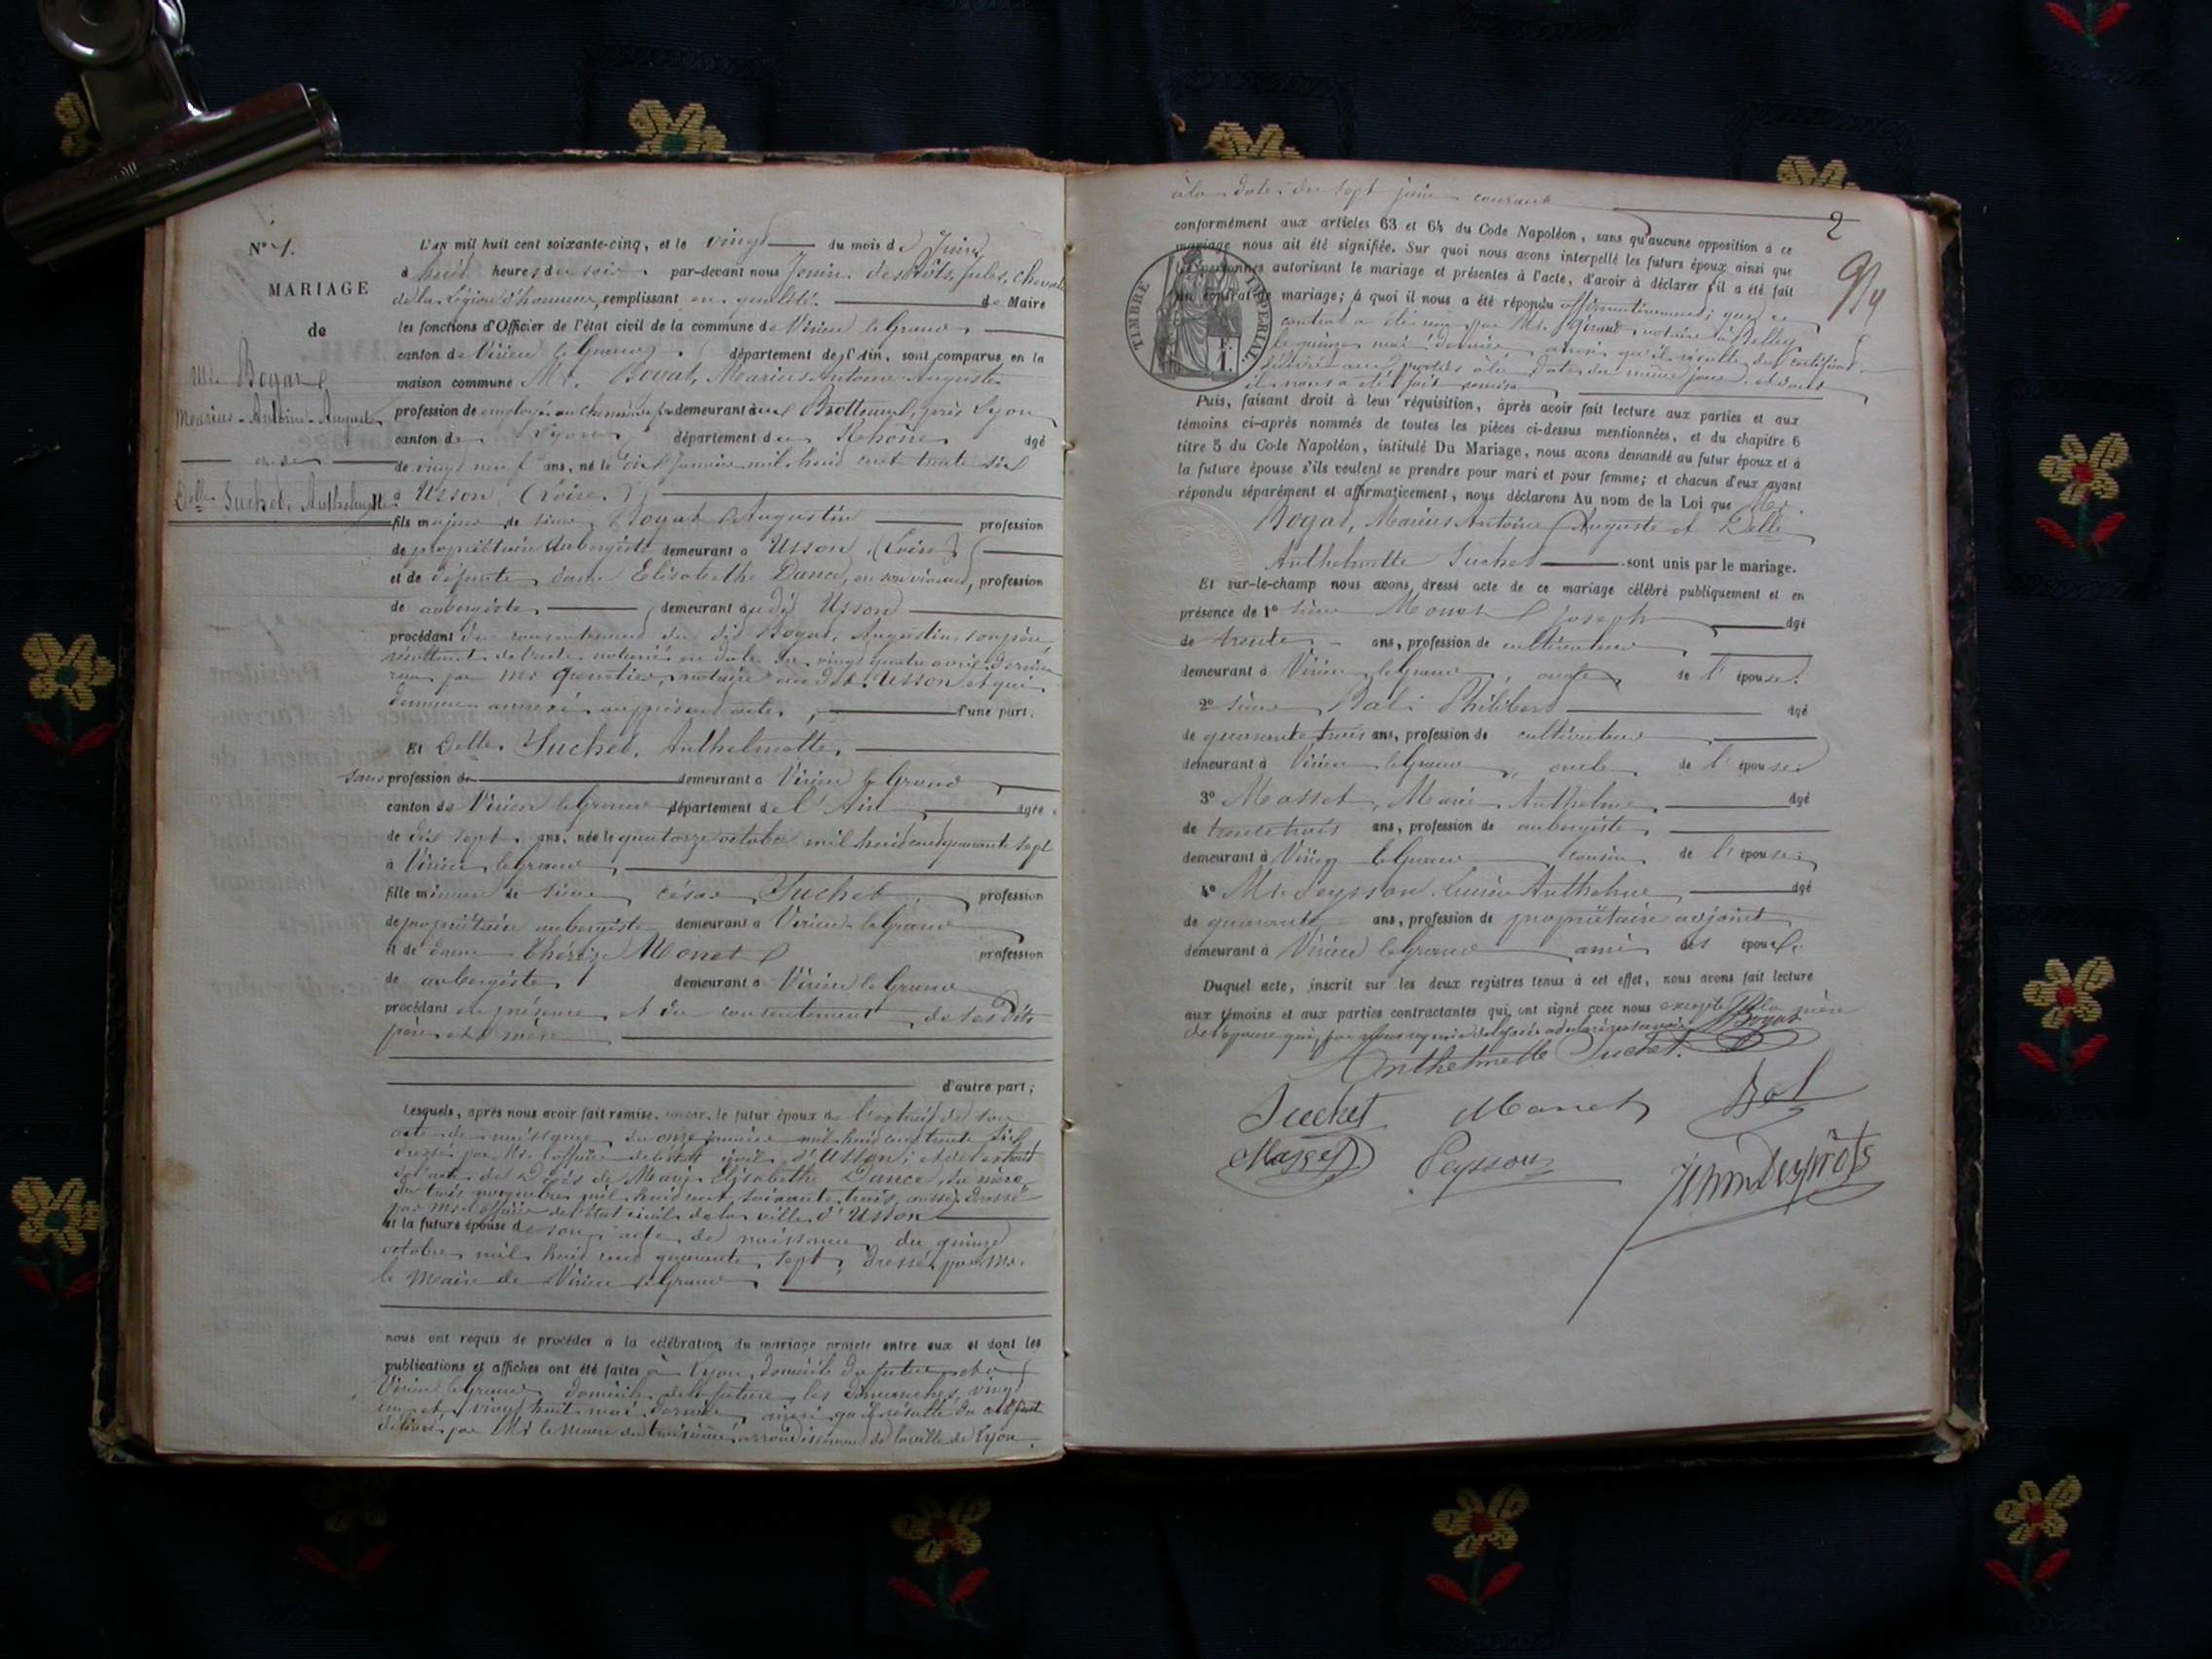 N° 1.
MARIAGE
de
Mr. Boyat
Marius-Antoine-Auguste
et de
Delle Suchet, Anthelmette
L'an mil huit cent soixante-cinq, et le vingt du mois de Juin
à huit heures du soir. par-devant nous Jenin desprôts, Jules, Chevalier
de la Légion d'honneur, remplissant en qualité de Maire
les fonctions d'Officier de l'état civil de la commune de Virieu le Grand,
canton de Virieu le Grand, département de l'Ain, sont comparus en la
maison commune Mr. Boyat, Marius Antoine Auguste
profession de employé au chemin de fer demeurant aux Brotteaux, près Lyon
canton de Lyon département du Rhône âgé
de vingt neuf ans, né le dix Janvier mil huit cent trente six
à Usson (Loire)
fils majeur de sieur Boyat Augustin profession
de propriétaire Aubergiste demeurant à Usson, (Loire)
et de défunte dame Elisabethe Dance, en son vivant, profession
de aubergiste demeurant audit Usson
procédant du consentement du dit Boyat, Augustin, son père
résultant de l'acte notarié en date du vingt quatre avril dernier
reçu par Mr notaire au dit Usson et qui
demeure annexé au présent acte, d'une part.
Et Delle Suchet, Anthelmette,
sans profession de demeurant à Virieu le Grand
canton de Virieu le Grand département de l'Ain âgée
de dix sept ans, née le quatorze octobre mil huit cent quarante sept
à Virieu le Grand
fille mineure de sieur César Suchet profession
de propriétaire aubergiste demeurant à Virieu-le Grand
et de dame Thérèse Monet profession
de aubergiste demeurant à Virieu le Grand
procédant en présence et du consentement de ses dits
père et mère
d'autre part;
Lesquels, après nous avoir fait remise, savoir, le futur époux de l'extrait de son
acte de naissance du onze janvier mil huit cent trente six
dressé par Mr. l'officier de l'état civil d'Usson; et de l'extrait
de l'acte de Décès de Marie Elisabethe Dance, sa mère,
du trois novembre mil huit cent soixante trois, aussi dressé
par Mr l'officier de l'état civil de la ville d'Usson
et la future épouse de son acte de naissance du quinze
octobre mil huit cent quarante sept, dressé par Mr.
le Maire de Virieu le Grand
nous ont requis de procéder à la célébration du mariage projeté entre eux et dont les
publications et affiches ont été faites à Lyon, domicile du futur et à
Virieu le Grand domicile de la future, les dimanches vingt
un et vingt huit mai dernier, ainsi qu'il résulte du certificat
délivré par Mr le Maire du troisième arrondissement de la ville de Lyon,
à la date du sept juin courant
2
conformément aux articles 63 et 64 du Code Napoléon, sans qu'aucune opposition à ce
mariage nous ait été signifiée. Sur quoi nous avons interpellé les futurs époux ainsi que
les personnes autorisant le mariage et présentes à l'acte, d'avoir à déclarer s'il a été fait
un contrat de mariage; à quoi il nous a été répondu affirmativement; que ce
TIMBRE IMPÉRIAL.
contrat a été reçu par Mr. notaire à Belley
le quinze mai dernier ainsi qu'il résulte du certificat
délivré aux parties à la date du même jour et dont
il nous a été fait remise
Puis, faisant droit à leur réquisition, après avoir fait lecture aux parties et aux
témoins ci-après nommés de toutes les pièces ci-dessus mentionnées, et du chapitre 6
titre 5 du Code Napoléon, intitulé Du Mariage, nous avons demandé au futur époux et à
la future épouse s'ils veulent se prendre pour mari et pour femme; et chacun d'eux ayant
répondu séparément et affirmativement, nous déclarons Au nom de la Loi que Mr.
Boyat, Marius Antoine Auguste et Delle
Anthelmette Suchet sont unis par le mariage.
Et sur-le-champ nous avons dressé acte de ce mariage célébré publiquement et en
présence de 1° sieur Monet Joseph âgé
de trente ans, profession de cultivateur
demeurant à Virieu le Grand, oncle de l'épouse;
2° sieur Philibert âgé
de quarante trois ans, profession de cultivateur
demeurant à Virieu le Grand, oncle de l'épouse;
3° Masset, Marie Anthelme, âgé
de trente trois ans, profession de aubergiste
demeurant à Virieu le Grand cousin de l'épouse;
4° Mr. Peysson Lucien Anthelme âgé
de quarante ans, profession de propriétaire adjoint
demeurant à Virieu le Grand ami des époux.
Duquel acte, inscrit sur les deux registres tenus à cet effet, nous avons fait lecture
aux témoins et aux parties contractantes qui ont signé avec nous excepté la mère
de l'épouse qui, par nous requise de le faire a déclaré ne savoir. Boyat
Anthelmette Suchet.
Suchet Monet Bal
Masset Peysson Jenin Desprôts